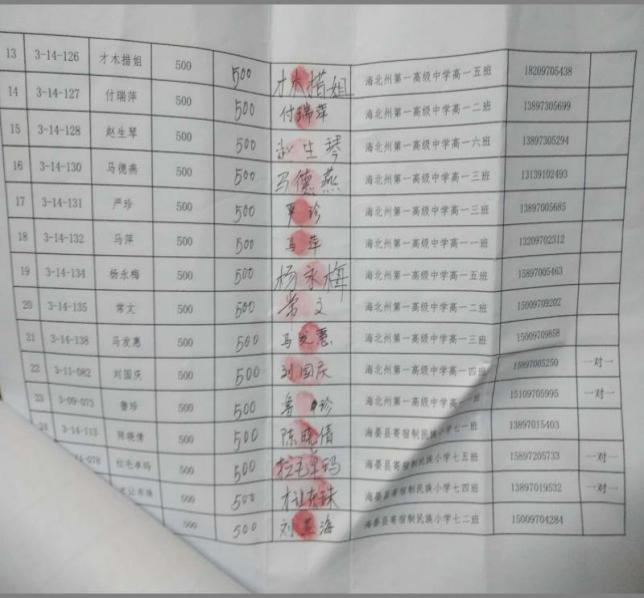 13 3-14-126 才木措姐 500 500 才木措姐 海北州第一高级中学高一五班 18209705438
14 3-14-127 付瑞萍 500 500 付瑞萍 海北州第一高级中学高一二班 13897305699
15 3-14-128 赵生琴 500 500 赵生琴 海北州第一高级中学高一六班 13897305294
16 3-14-130 马德燕 500 500 马德燕 海北州第一高级中学高一三班 13139102493
17 3-14-131 严珍 500 500 严珍 海北州第一高级中学高一三班 13897005685
18 3-14-132 马萍 500 500 马萍 海北州第一高级中学高一一班 13209702312
19 3-14-134 杨永梅 500 500 杨永梅 海北州第一高级中学高一五班 15897005463
20 3-14-135 常文 500 500 常文 海北州第一高级中学高一二班 15009709202
21 3-14-138 马发惠 500 500 马发惠 海北州第一高级中学高一三班 15009709858
22 3-11-082 刘国庆 500 500 刘国庆 海北州第一高级中学高一四班 15897005250 一对一
23 3-09-073 鲁珍 500 500 鲁珍 海北州第一高级中学高一 班 15109705995 一对一
3-14-113 陈晓倩 500 500 陈晓倩 海晏县寄宿制民族小学七一班 13897015403
-078 拉毛卓玛 500 500 拉毛卓玛 海晏县寄宿制民族小学七五班 15897205733 一对一
才让东珠 500 500 才让东珠 海晏县寄宿制民族小学七四班 13897019532 一对一
500 500 刘 海 海晏县寄宿制民族小学七二班 15009704284